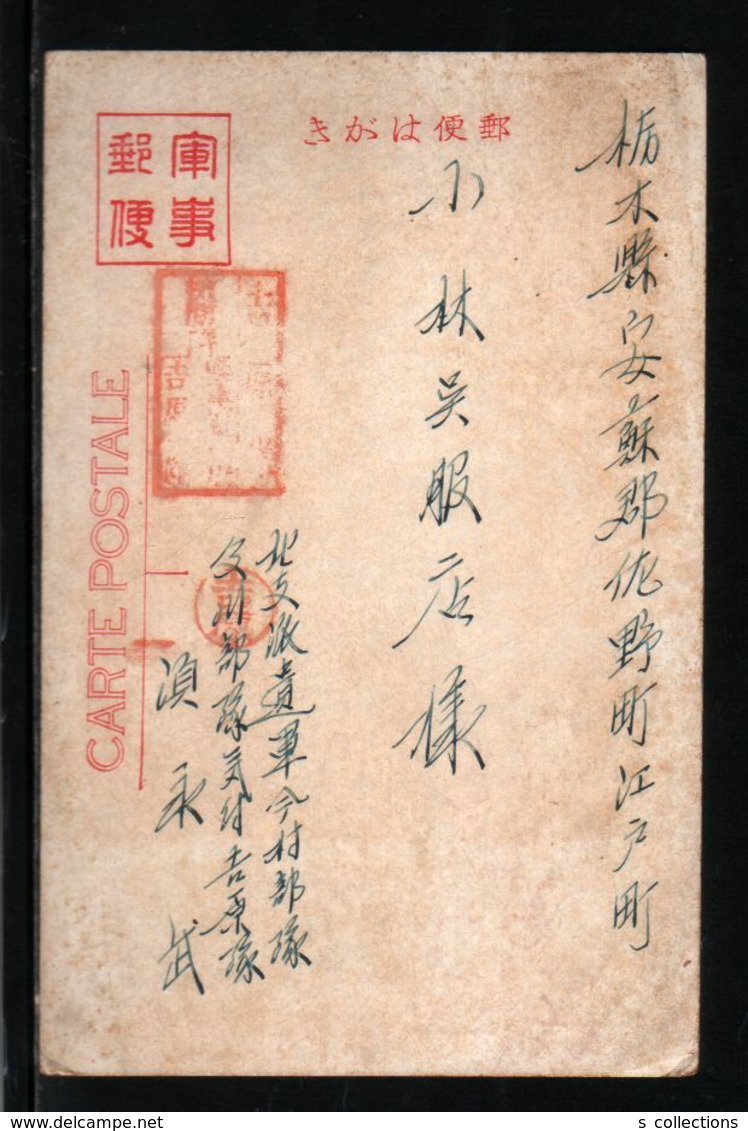 きがは便郵
軍事
郵便
CARTE POSTALE
栃木縣安蘇郡佐野町江戸町
小林呉服店様
北支派遣軍今村部隊
及川部隊気付吉原隊
永武
s collections